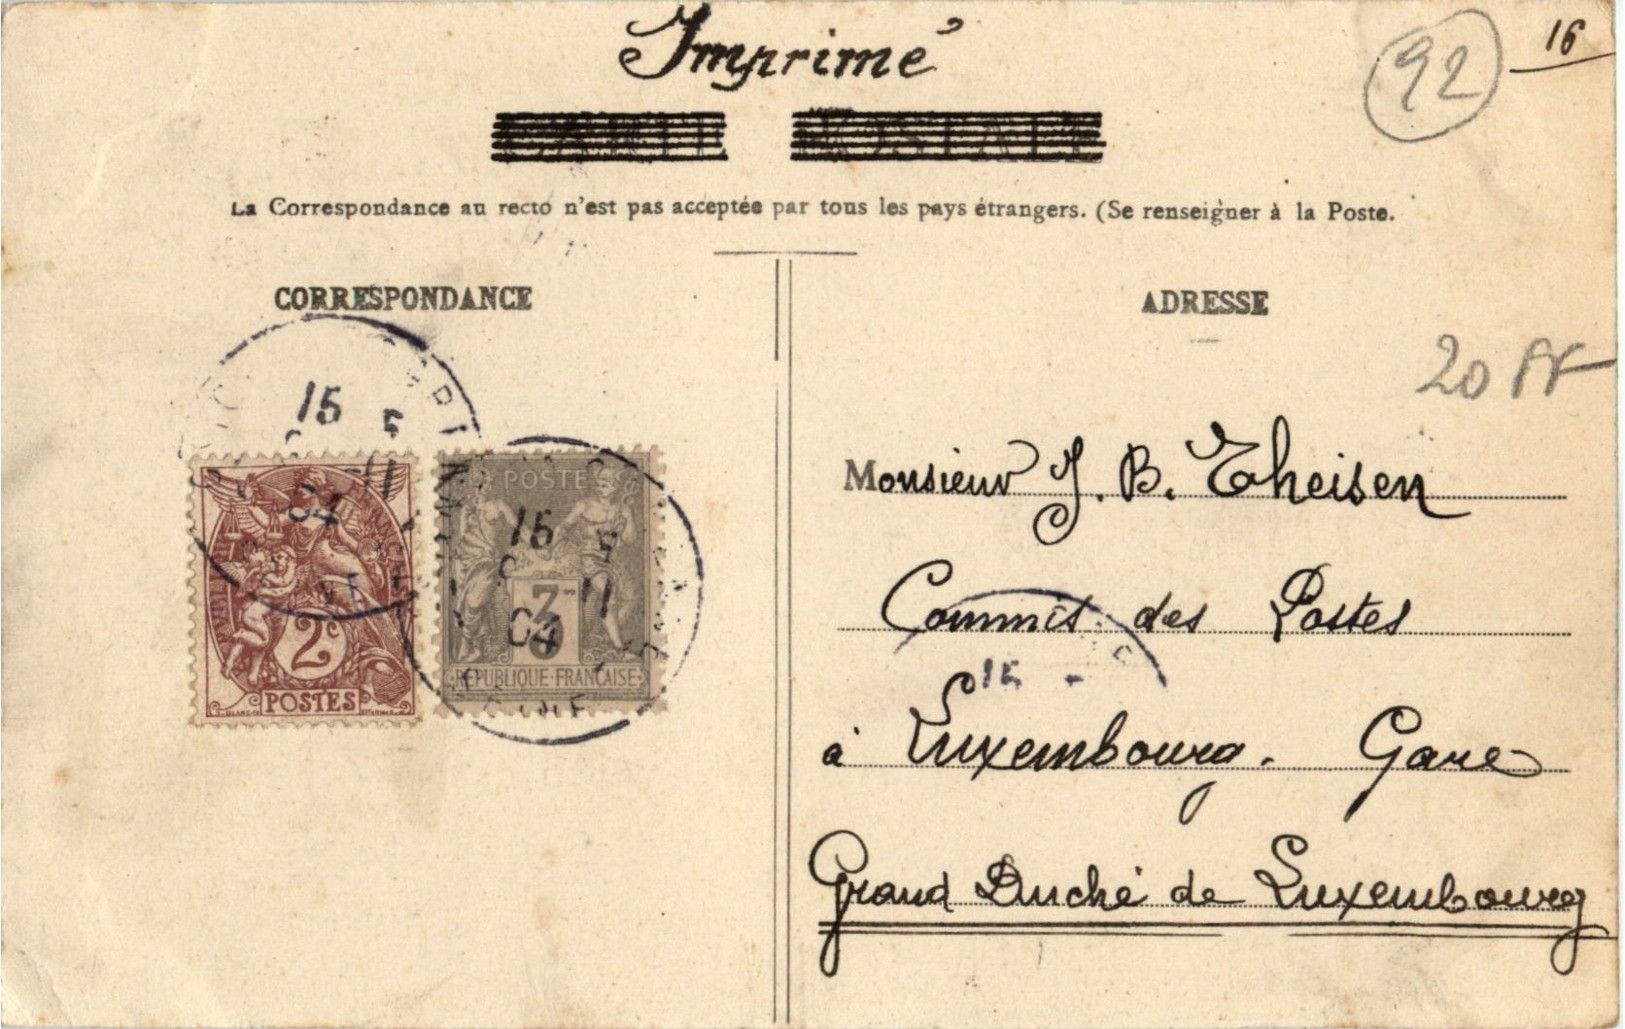 Imprimé
92
16
CARTE POSTALE
La Correspondance au recto n'est pas acceptée par tous les pays étrangers. (Se renseigner à la Poste.
CORRESPONDANCE
ADRESSE
20
15
04
2c
POSTES
POSTES
15
04
3
REPUBLIQUE FRANCAISE
Monsieur J. B. Theisen
Commis des Postes
15
à Luxembourg. Gare
Grand Duché de Luxembourg